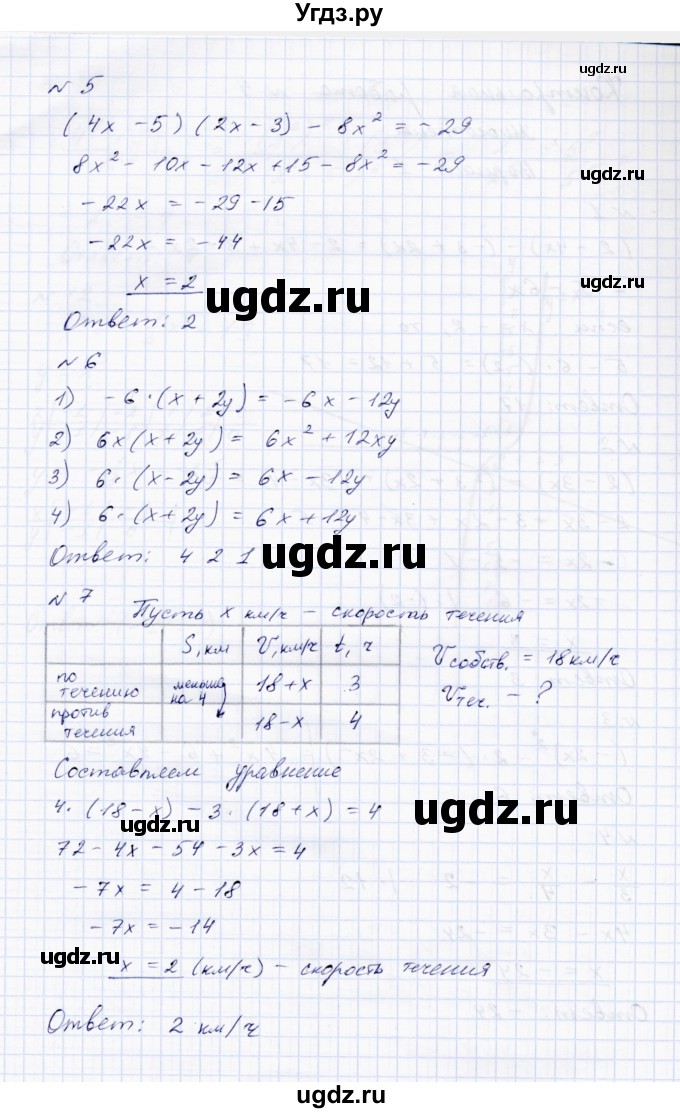 Угдз.ру
ugdz.ru
№ 5
(4x - 5)(2x - 3) - 8x² = -29
8x² - 10x - 12x + 15 - 8x² = -29
ugdz.ru
-22x = -29 - 15
-22x = -44
x = 2
ugdz.ru
ugdz.ru
Ответ: 2
№ 6
1) -6·(x + 2y) = -6x - 12y
2) 6x(x + 2y) = 6x² + 12xy
3) 6·(x - 2y) = 6x - 12y
4) 6·(x + 2y) = 6x + 12y
ugdz.ru
Ответ: 4 2 1
ugdz.ru
№ 7 Пусть x км/ч - скорость течения
S, км V, км/ч t, ч
по течению меньше на 4 18+x 3
против течения 18-x 4
Vсобств. = 18 км/ч
Vтеч. - ?
Составляем уравнение
4·(18 - x) - 3·(18 + x) = 4
ugdz.ru
ugdz.ru
72 - 4x - 54 - 3x = 4
-7x = 4 - 18
-7x = -14
ugdz.ru
ugdz.ru
x = 2 (км/ч) - скорость течения
Ответ: 2 км/ч
ugdz.ru
ugdz.ru